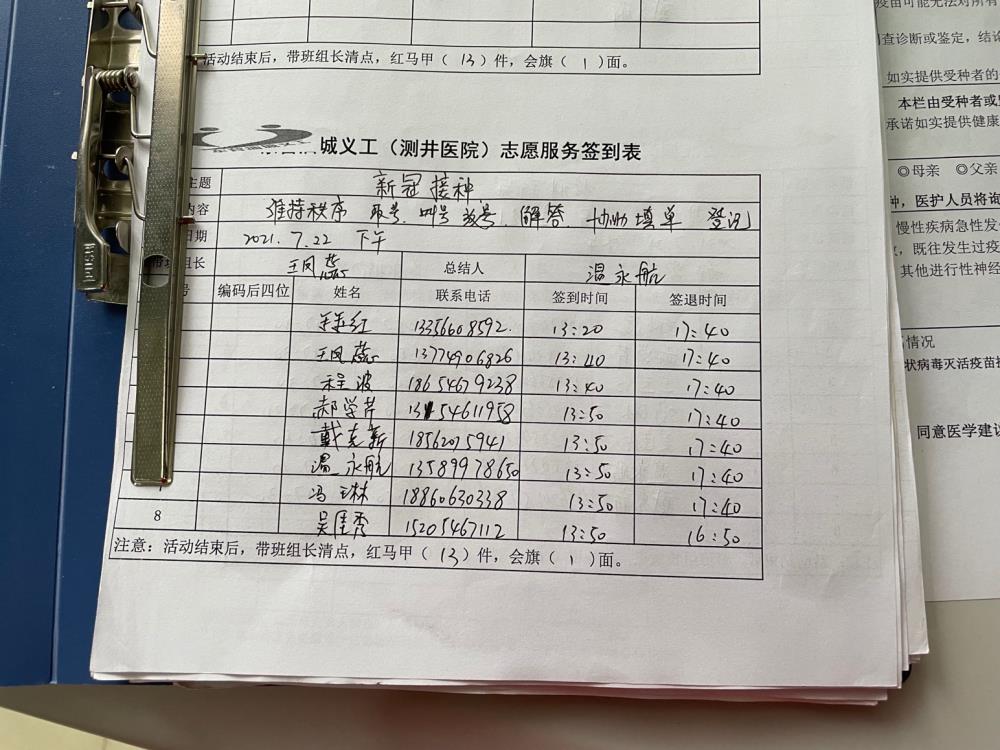 活动结束后，带班组长清点，红马甲（13）件，会旗（1）面。
城义工（测井医院）志愿服务签到表
主题 新冠接种
内容 维持秩序 取号、叫号 解答 协助填单 登记
日期 2021.7.22 下午
组长 王凤蕊 总结人 温永航
号 编码后四位 姓名 联系电话 签到时间 签退时间
红 13356608592. 13:20 17:40
王凤蕊 13774906826 13:40 17:40
程波 18654679238 13:40 17:40
郝学芹 54611958 13:50 17:40
戴克新 18562075941 13:50 17:40
温永航 13589978650 13:50 17:40
冯琳 18860630338 13:50 17:40
8 吴佳秀 15205467112 13:50 16:50
注意：活动结束后，带班组长清点，红马甲（13）件，会旗（1）面。
疫苗可能无法对所有
查诊断或鉴定，结论
如实提供受种者的
本栏由受种者或
承诺如实提供健康
◎母亲 ◎父亲
种，医护人员将询
慢性疾病急性发
，既往发生过疫
其他进行性神经
情况
状病毒灭活疫苗
同意医学建议